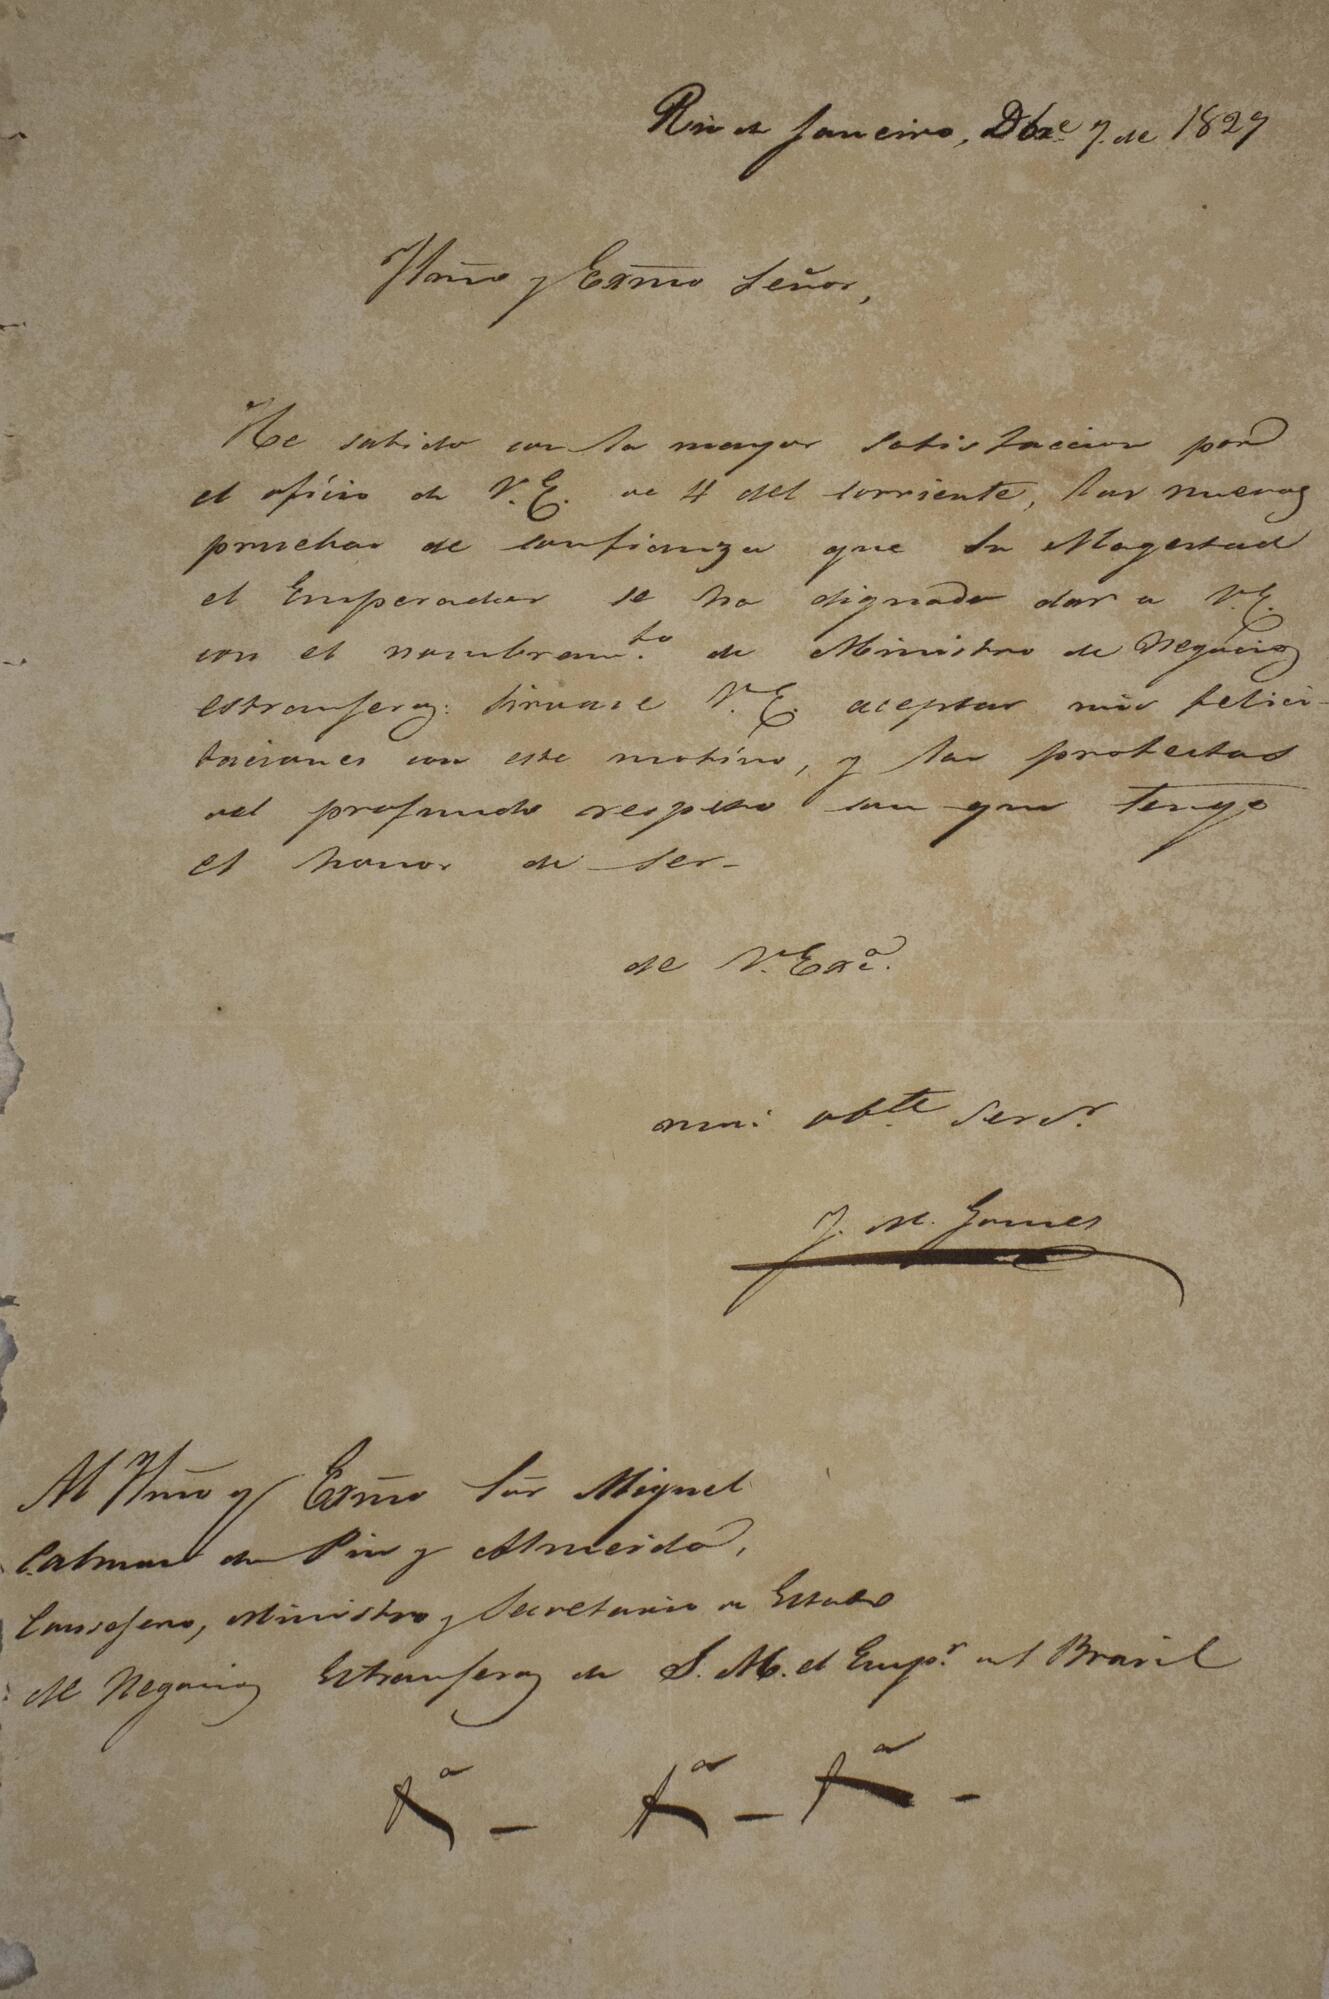 Rio de Janeiro, Dbre 7. de 1829
Illmo y Exmo Señor,
He sabido con la mayor satisfaccion por
el oficio de V.E. de 4 del corriente, las nuevas
pruebas de confianza que Su Magestad
el Emperador se ha dignado dar a V.E.
con el nombram.to de Ministro de Negocios
estranjeros: sirvase V.E. aceptar mis felici-
taciones con este motivo, y las protestas
del profundo respeto con que tengo
el honor de ser-
de V. Exc.a
mui obte Servr
J. M. Gomes
Al Illmo y Exmo Sor Miguel
Calmon du Pin y Almeida,
Consejero, Ministro y Secretario de Estado
de Negocios Estranjeros de S. M. el Emp.r del Brasil
&a - &a - &a -